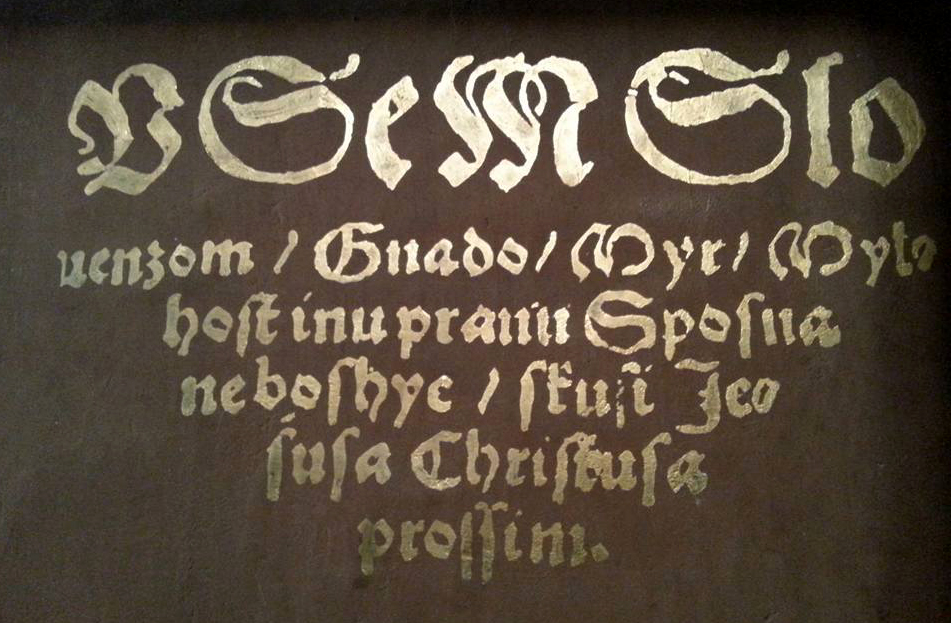 VSeM Slo
uenzom / Gnado / Myr / Mylo
hoſt inu prauu Sposna
ne boſhye / ſkuſi Jeo
ſuſa Chriſtuſa
proſſim.